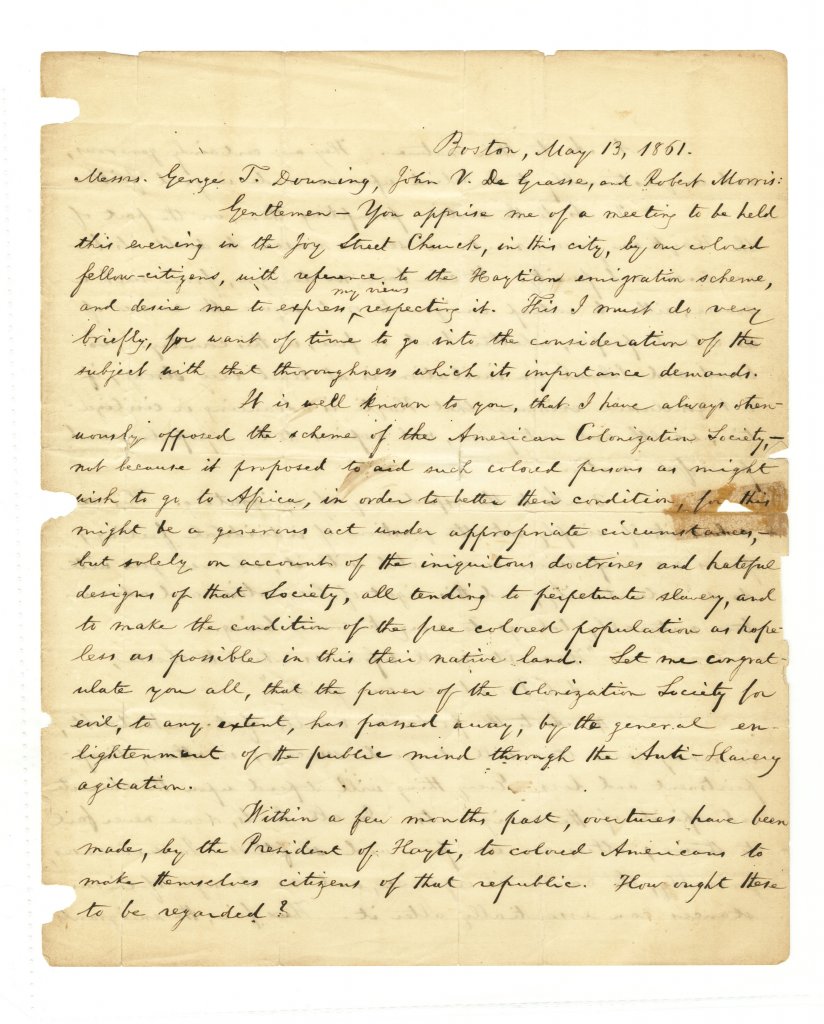 Boston, May 13, 1861.
Messrs. George T. Downing, John V. De Grasse, and Robert Morris:
Gentlemen — You apprise me of a meeting to be held
this evening in the Joy Street Church, in this city, by our colored
fellow-citizens, with reference to the Haytian emigration scheme,
my views
and desire me to express, respecting it. This I must do very
briefly, for want of time to go into the consideration of the
subject with that thoroughness which its importance demands.
It is well known to you, that I have always stren-
uously opposed the scheme of the American Colonization Society,—
not because it proposed to aid such colored persons as might
wish to go to Africa, in order to better their condition, for this
might be a generous act under appropriate circumstances,—
but solely on account of the iniquitous doctrines and hateful
designs of that Society, all tending to perpetuate slavery, and
to make the condition of the free colored population as hope-
less as possible in this their native land. Let me congrat-
ulate you all, that the power of the Colonization Society for
evil, to any extent, has passed away, by the general en-
lightenment of the public mind through the Anti-Slavery
agitation.
Within a few months past, overtures have been
made, by the President of Hayti, to colored Americans to
make themselves citizens of that republic. How ought these
to be regarded?